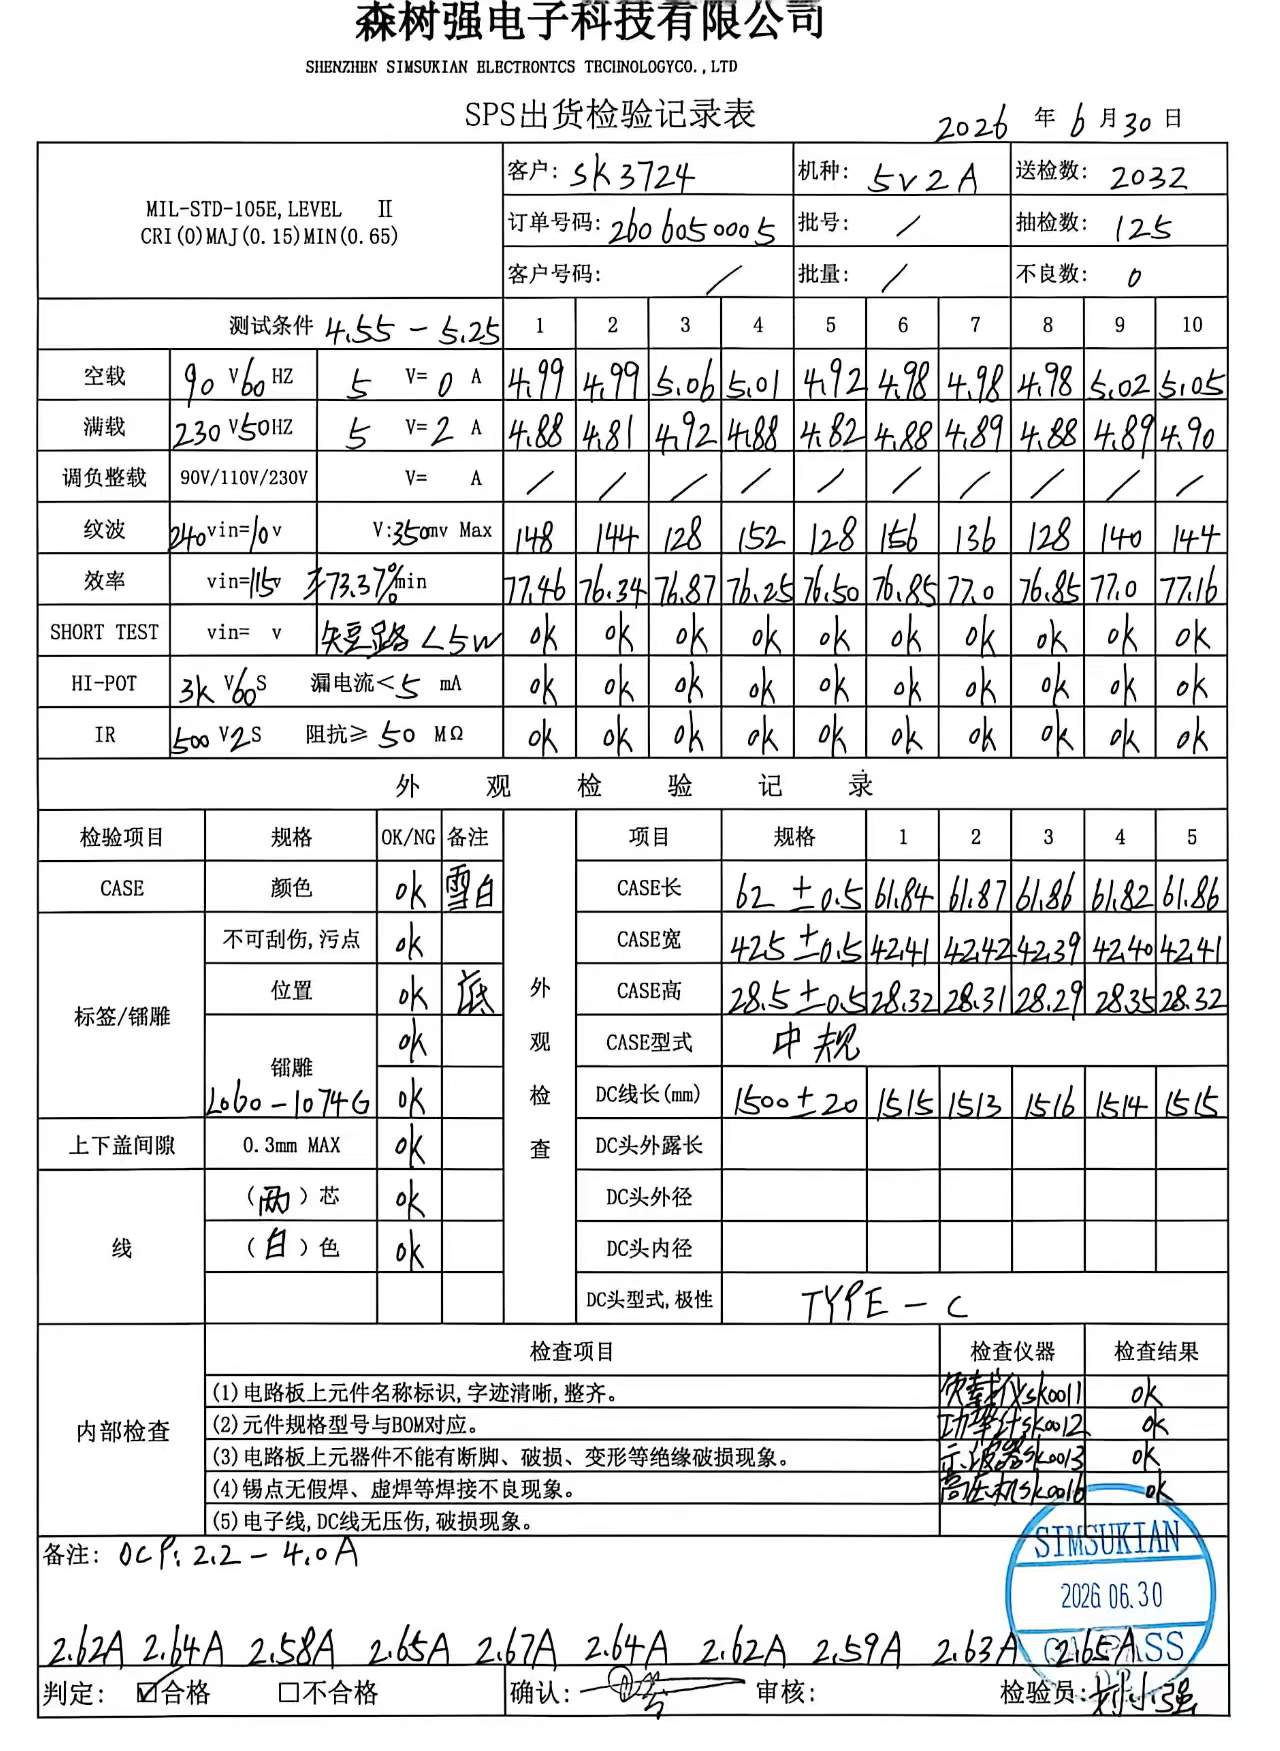 森树强电子科技有限公司
SHENZHEN SIMSUKIAN ELECTRONTCS TECHNOLOGYCO.,LTD
SPS出货检验记录表
2026 年 6 月 30 日
MIL-STD-105E,LEVEL Ⅱ
CRI(0)MAJ(0.15)MIN(0.65)
客户: SK3724 机种: 5V2A 送检数: 2032
订单号码: 2606050005 批号: / 抽检数: 125
客户号码: / 批量: / 不良数: 0
测试条件 4.55-5.25 1 2 3 4 5 6 7 8 9 10
空载 90 V 60 HZ 5 V= 0 A 4.99 4.99 5.06 5.01 4.92 4.98 4.98 4.98 5.02 5.05
满载 230 V 50 HZ 5 V= 2 A 4.88 4.81 4.92 4.88 4.82 4.88 4.89 4.88 4.89 4.90
调负整载 90V/110V/230V V= A / / / / / / / / / /
纹波 240 vin= 10 v V: 350 mv Max 148 144 128 152 128 156 136 128 140 144
效率 vin= 115 v 73.37% min 77.46 76.34 76.87 76.25 76.50 76.85 77.0 76.85 77.0 77.16
SHORT TEST vin= v 短路 <5W OK OK OK OK OK OK OK OK OK OK
HI-POT 3K V 60 S 漏电流< 5 mA OK OK OK OK OK OK OK OK OK OK
IR 500 V 2 S 阻抗≥ 50 MΩ OK OK OK OK OK OK OK OK OK OK
外观检验记录
检验项目 规格 OK/NG 备注 项目 规格 1 2 3 4 5
CASE 颜色 OK 雪白 CASE长 62 ±0.5 61.84 61.87 61.86 61.82 61.86
不可刮伤,污点 OK CASE宽 42.5 ±0.5 42.41 42.42 42.39 42.40 42.41
标签/镭雕 位置 OK 底 外观检查 CASE高 28.5 ±0.5 28.32 28.31 28.29 28.35 28.32
OK CASE型式 中规
镭雕 L060-1074G OK DC线长(mm) 1500±20 1515 1513 1516 1514 1515
上下盖间隙 0.3mm MAX OK DC头外露长
线 (两)芯 OK DC头外径
(白)色 OK DC头内径
DC头型式,极性 TYPE-C
内部检查 检查项目 检查仪器 检查结果
(1)电路板上元件名称标识,字迹清晰,整齐。 负载仪SK0011 OK
(2)元件规格型号与BOM对应。 功率计SK0012 OK
(3)电路板上元器件不能有断脚、破损、变形等绝缘破损现象。 示波器SK0013 OK
(4)锡点无假焊、虚焊等焊接不良现象。 高压机SK0016 OK
(5)电子线,DC线无压伤,破损现象。
备注: OCP: 2.2-4.0A
SIMSUKIAN
2026.06.30
2.62A 2.64A 2.58A 2.65A 2.67A 2.64A 2.62A 2.59A 2.63A 2.65A
PASS
判定: ☑合格 □不合格 确认: 审核: 检验员: 刘小强